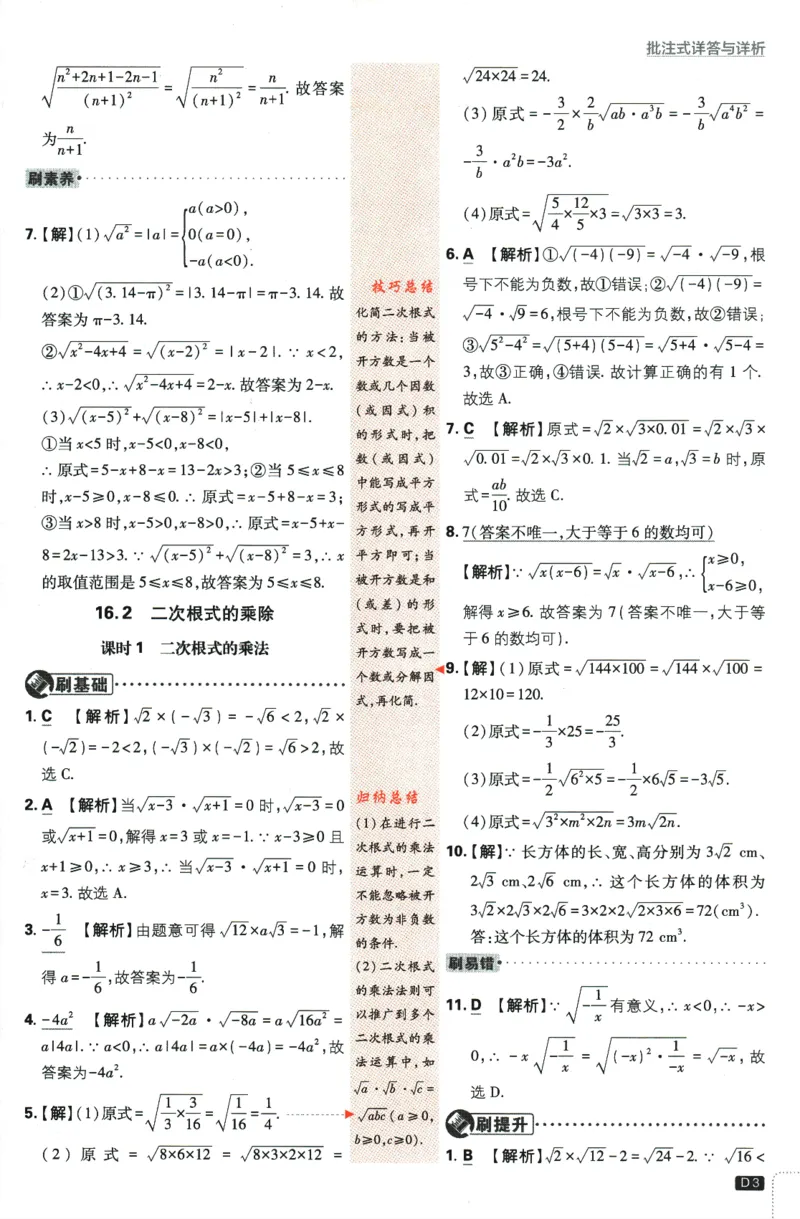 批注式详答与详析
√((n²+2n+1-2n-1)/(n+1)²) = √(n²/(n+1)²) = n/(n+1). 故答案
为 n/(n+1).
刷素养
7.【解】(1)√a² = |a| = { a(a>0), 0(a=0), -a(a<0).
(2)①√(3.14-π)² = |3.14-π| = π-3.14. 故
答案为 π-3.14.
②√(x²-4x+4) = √(x-2)² = |x-2|. ∵ x<2,
∴ x-2<0, ∴ √(x²-4x+4) = 2-x. 故答案为 2-x.
(3)√(x-5)² + √(x-8)² = |x-5|+|x-8|.
①当 x<5 时,x-5<0,x-8<0,
∴ 原式=5-x+8-x=13-2x>3;②当 5≤x≤8
时,x-5≥0,x-8≤0. ∴ 原式=x-5+8-x=3;
③当 x>8 时,x-5>0,x-8>0,∴ 原式=x-5+x-
8=2x-13>3. ∵ √(x-5)² + √(x-8)² = 3,∴ x
的取值范围是 5≤x≤8,故答案为 5≤x≤8.
16.2 二次根式的乘除
课时1 二次根式的乘法
刷基础
1. C 【解析】√2×(-√3) = -√6 < 2,√2×
(-√2)=-2<2,(-√3)×(-√2)=√6>2,故
选 C.
2. A 【解析】当√(x-3)·√(x+1)=0 时,√(x-3)=0
或√(x+1)=0,解得 x=3 或 x=-1. ∵ x-3≥0 且
x+1≥0,∴ x≥3,∴ 当√(x-3)·√(x+1)=0 时,
x=3. 故选 A.
3. -1/6 【解析】由题意可得 √12×a√3=-1,解
得 a=-1/6,故答案为-1/6.
4. -4a² 【解析】a√(-2a)·√(-8a)=a√(16a²)=
a|4a|. ∵ a<0,∴ a|4a|=a×(-4a)=-4a²,故
答案为-4a².
5.【解】(1)原式=√(1/3×3/16)=√(1/16)=1/4.
(2)原式=√(8×6×12)=√(8×3×2×12)=
技巧总结
化简二次根式
的方法:当被
开方数是一个
数或几个因数
(或因式)积
的形式时,把
数(或因式)
中能写成平方
形式的写成平
方形式,再开
平方即可;当
被开方数是和
(或差)的形
式时,要把被
开方数写成一
个数或分解因
式,再化简.
归纳总结
(1)在进行二
次根式的乘法
运算时,一定
不能忽略被开
方数为非负数
的条件.
(2)二次根式
的乘法法则可
以推广到多个
二次根式的乘
法运算中,如
√a·√b·√c=
√(abc)(a≥0,
b≥0,c≥0).
√(24×24)=24.
(3)原式=-3/2×2/b√(ab·a³b)=-3/b√(a⁴b²)=
-3/b·a²b=-3a².
(4)原式=√(5/4×12/5×3)=√(3×3)=3.
6. A 【解析】①√((-4)(-9))=√-4·√-9,根
号下不能为负数,故①错误;②√((-4)(-9))=
√-4·√9=6,根号下不能为负数,故②错误;
③√(5²-4²)=√((5+4)(5-4))=√(5+4)·√(5-4)=
3,故③正确,④错误. 故计算正确的有 1 个.
故选 A.
7. C 【解析】原式=√2×√(3×0.01)=√2×√3×
√0.01=√2×√3×0.1. 当√2=a,√3=b 时,原
式=ab/10. 故选 C.
8. 7(答案不唯一,大于等于 6 的数均可)
【解析】∵ √(x(x-6))=√x·√(x-6),∴ { x≥0, x-6≥0,
解得 x≥6. 故答案为 7(答案不唯一,大于等
于 6 的数均可).
9.【解】(1)原式=√(144×100)=√144×√100=
12×10=120.
(2)原式=-1/3×25=-25/3.
(3)原式=-1/2√(6²×5)=-1/2×6√5=-3√5.
(4)原式=√(3²×m²×2n)=3m√(2n).
10.【解】∵ 长方体的长、宽、高分别为 3√2 cm、
2√3 cm、2√6 cm,∴ 这个长方体的体积为
3√2×2√3×2√6=3×2×2√(2×3×6)=72(cm³).
答:这个长方体的体积为 72 cm³.
刷易错
11. D 【解析】∵ √(-1/x) 有意义,∴ x<0,∴ -x>
0,∴ -x√(-1/x)=√((-x)²·1/(-x))=√(-x),故
选 D.
刷提升
1. B 【解析】√2×√12-2=√24-2. ∵ √16<
D3